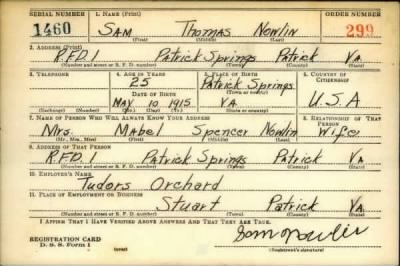 SERIAL NUMBER 1. NAME (Print) ORDER NUMBER
1460 SAM THOMAS NOWLIN 299
(First) (Middle) (Last)
2. ADDRESS (Print)
R.F.D. 1 PATRICK SPRINGS PATRICK VA.
(Number and street or R. F. D. number) (Town) (County) (State)
3. TELEPHONE 4. AGE IN YEARS 5. PLACE OF BIRTH 6. COUNTRY OF CITIZENSHIP
25 PATRICK SPRINGS
DATE OF BIRTH (Town or county)
MAY 10 1915 VA. U.S.A
(Exchange) (Number) (Mo.) (Day) (Yr.) (State or country)
7. NAME OF PERSON WHO WILL ALWAYS KNOW YOUR ADDRESS 8. RELATIONSHIP OF THAT PERSON
Mrs. Mabel Spencer Nowlin Wife
(Mr., Mrs., Miss) (First) (Middle) (Last)
9. ADDRESS OF THAT PERSON
R.F.D. 1 Patrick Springs Patrick Va
(Number and street or R. F. D. number) (Town) (County) (State)
10. EMPLOYER'S NAME
Tudors Orchard
11. PLACE OF EMPLOYMENT OR BUSINESS
Stuart Patrick Va
(Number and street or R. F. D. number) (Town) (County) (State)
I AFFIRM THAT I HAVE VERIFIED ABOVE ANSWERS AND THAT THEY ARE TRUE.
REGISTRATION CARD
D. S. S. Form 1 (over) (Registrant's signature)